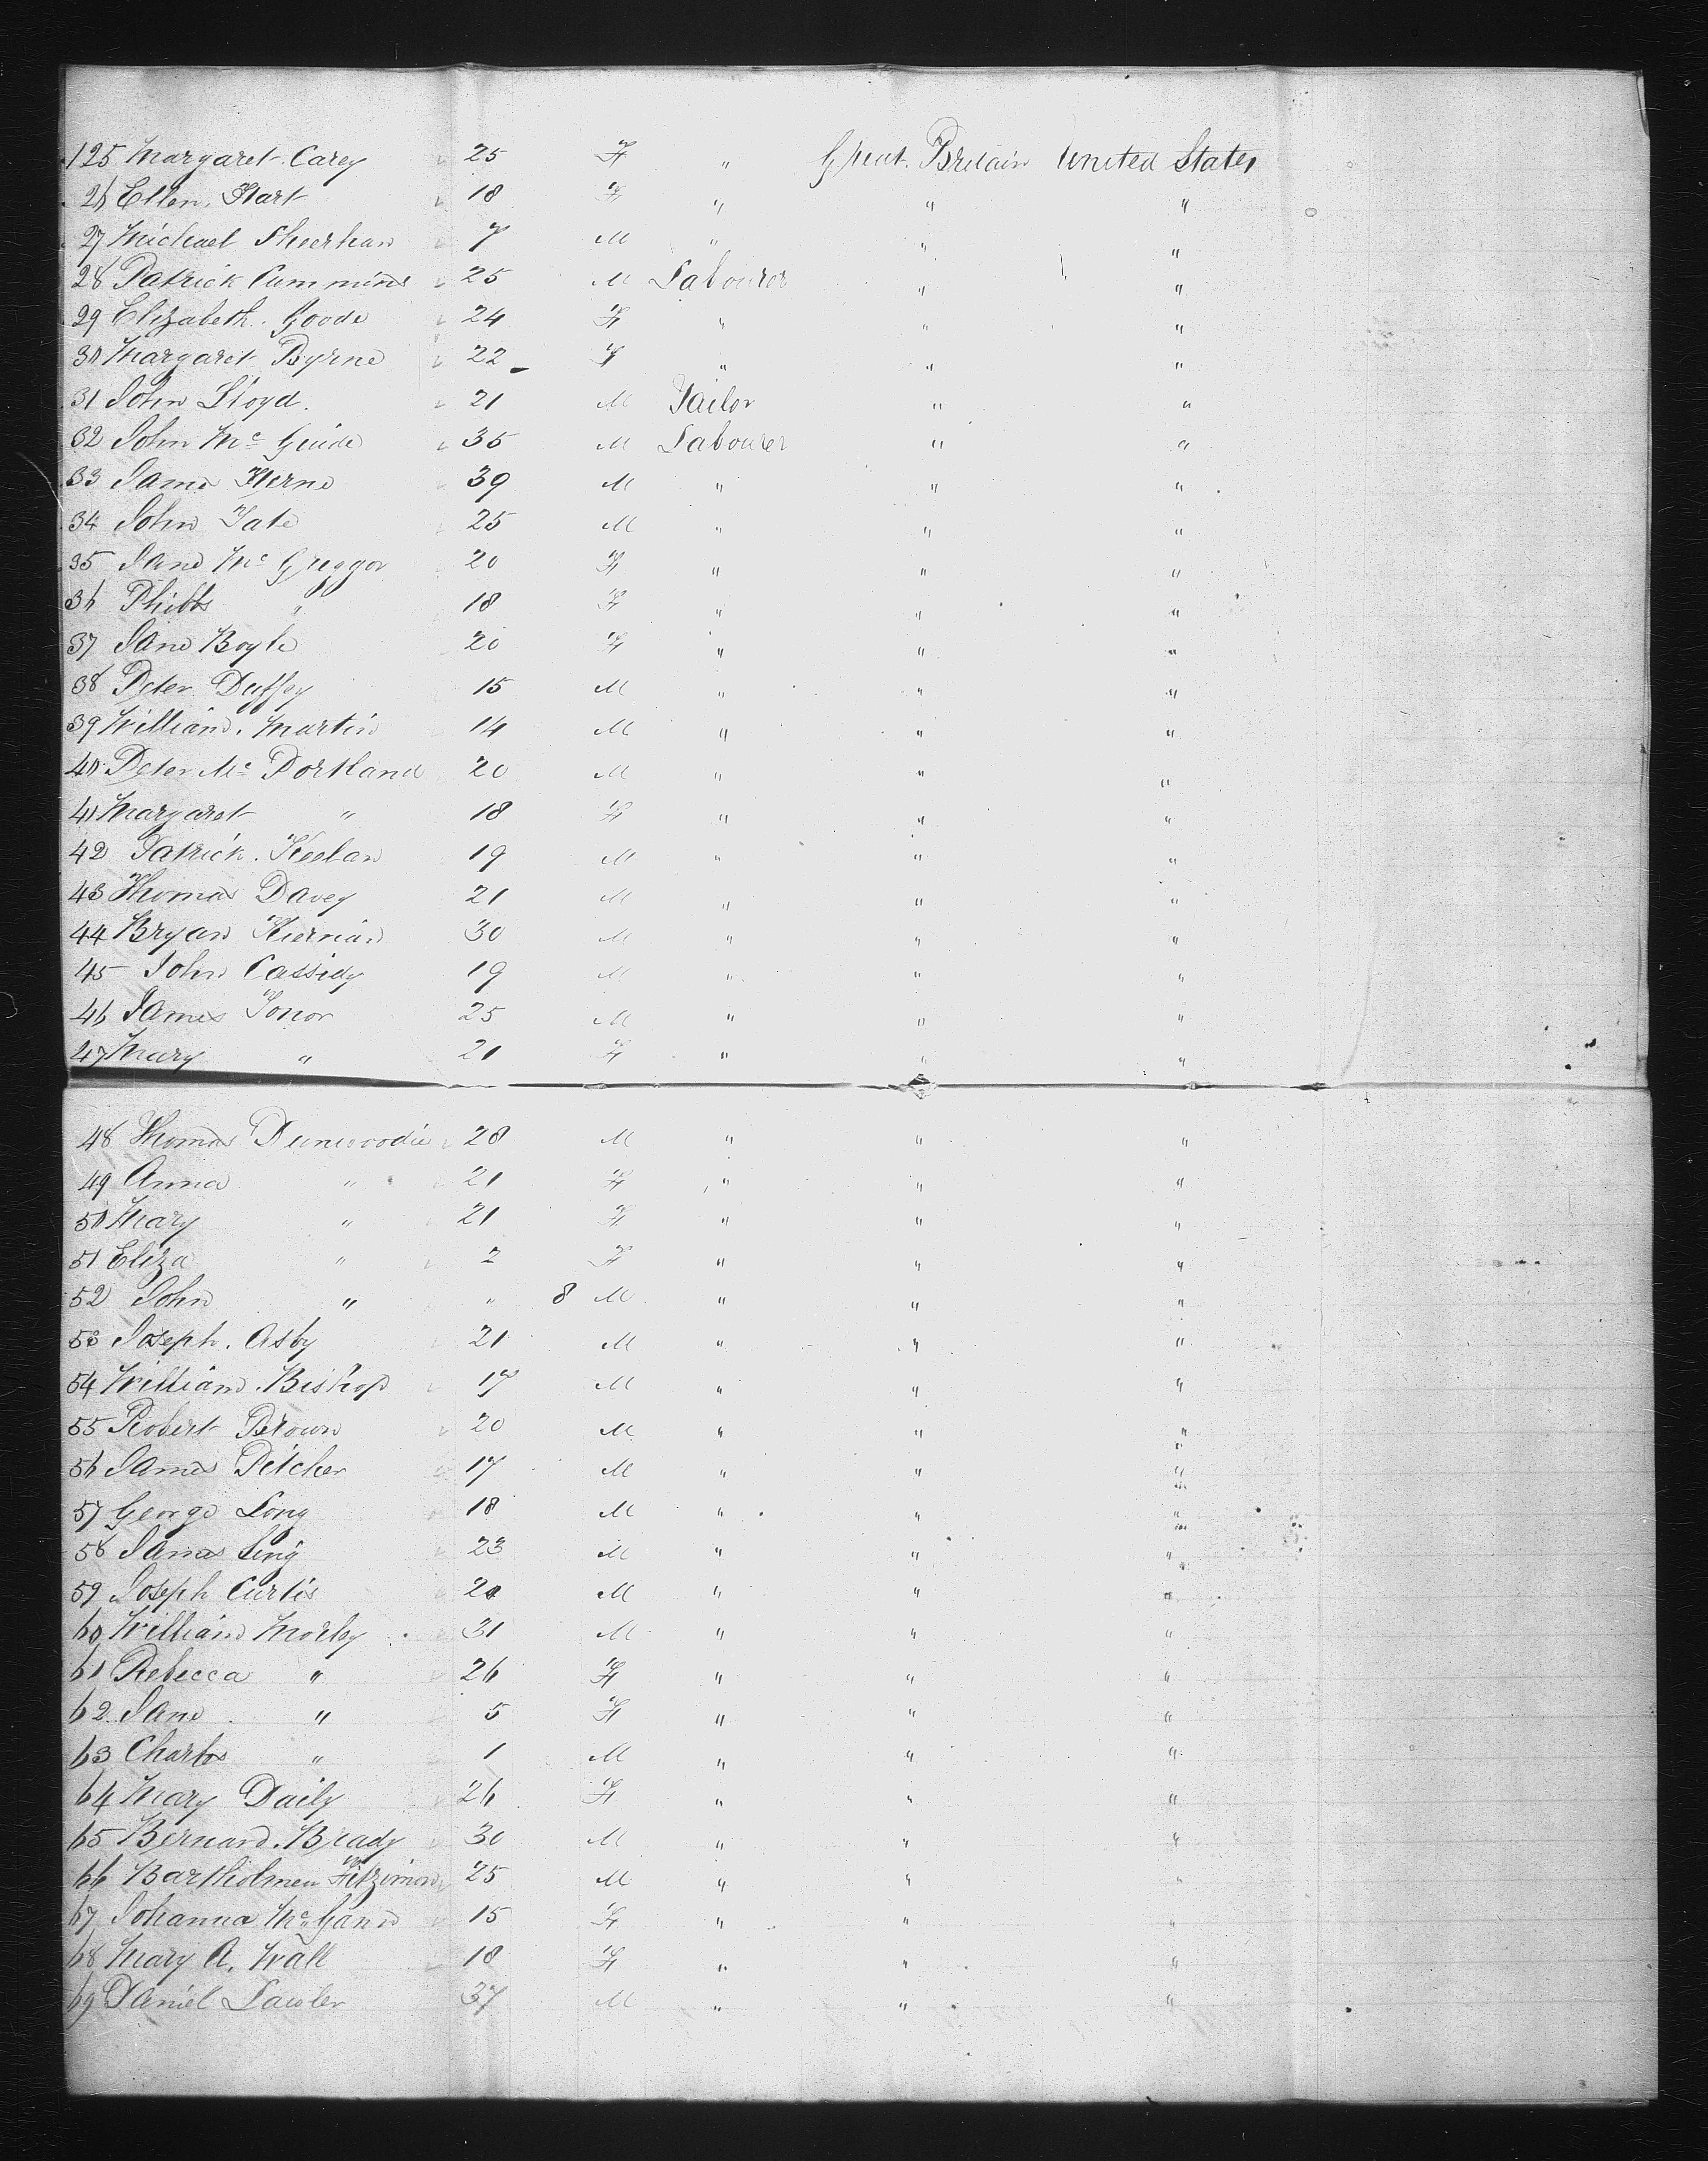 125 Margaret Carey 25 F " Great Britain United States
26 Ellen Hart 18 F " " "
27 Michael Sheerhan 7 M " " "
28 Patrick Cummins 25 M Labourer " "
29 Elizabeth Goode 24 F " " "
30 Margaret Byrne 22 F " " "
31 John Lloyd 21 M Tailor " "
32 John Mc Guide 35 M Labourer " "
33 James Herne 39 M " " "
34 John Tate 25 M " " "
35 Jane Mc Greggor 20 F " " "
36 Phibbs " 18 F " " "
37 Jane Boyle 20 F " " "
38 Peter Duffey 15 M " " "
39 William Martin 14 M " " "
40 Peter Mc Portland 20 M " " "
41 Margaret " 18 F " " "
42 Patrick Keelan 19 M " " "
43 Thomas Davey 21 M " " "
44 Bryan Kiernan 30 M " " "
45 John Cassidy 19 M " " "
46 James Tonor 25 M " " "
47 Mary " 21 F " " "
48 Thomas Dunwoodie 28 M " " "
49 Anna " 21 F " " "
50 Mary " 21 F " " "
51 Eliza " 2 F " " "
52 John " " 8 M " " "
53 Joseph Asby 21 M " " "
54 William Bishop 17 M " " "
55 Robert Brown 20 M " " "
56 James Pitcher 17 M " " "
57 George Long 18 M " " "
58 James 23 M " " "
59 Joseph Curtis 20 M " " "
60 William Morley 31 M " " "
61 Rebecca " 26 F " " "
62 Jane " 5 F " " "
63 Charles " 1 M " " "
64 Mary Daily 26 F " " "
65 Bernard Brady 30 M " " "
66 Bartholmeu Fitzimons 25 M " " "
67 Johanna Mc Gann 15 F " " "
68 Mary A. Wall 18 F " " "
69 Daniel Lawler 37 M " " "